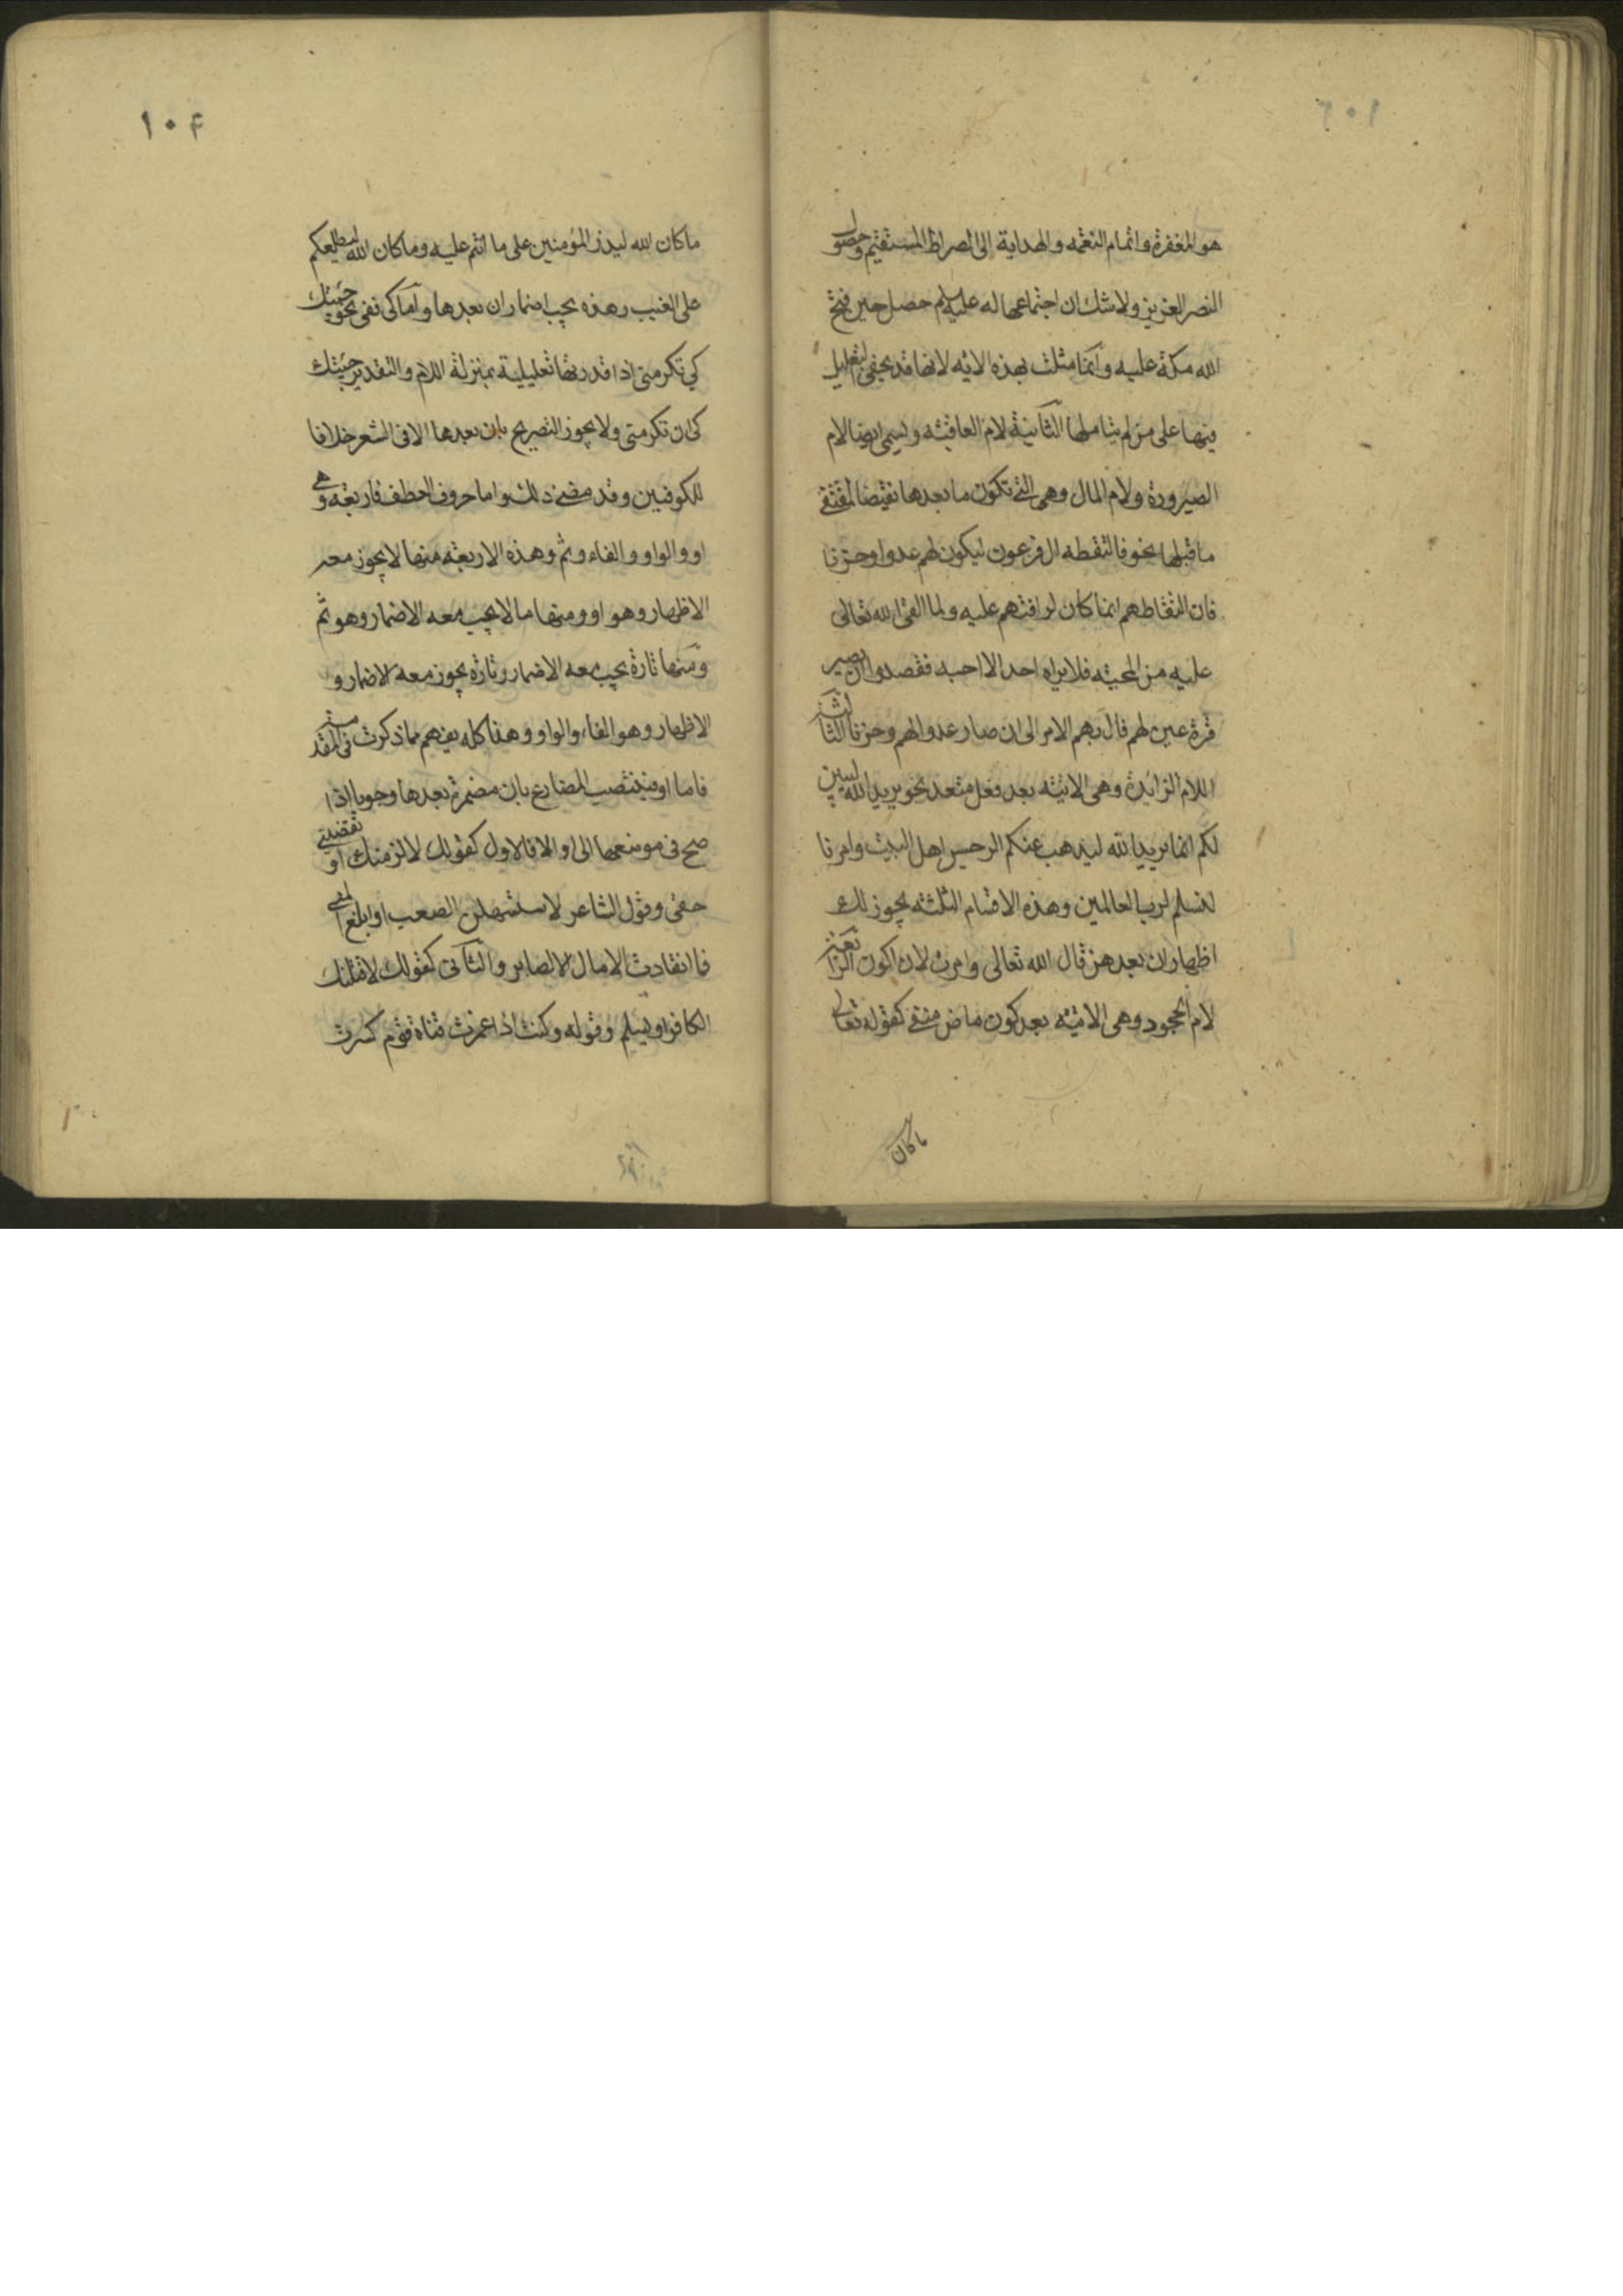 هو المغفرة واتمام النعمه والهداية الى الصراط المستقيم وحصول
النصر العزيز ولا شك ان اجتماعها له عليه السلم حصل حين فتح
الله مكة عليه وانما مثلت بهذه الايه لانها قد يخفى التعليل
فيها على من لم يتاملها الثانية لام العاقبه ويسمى ايضا لام
الصيرورة ولام المال وهى التى تكون ما بعدها نقيضا لمقتضى
ما قبلها نحو فالتقطه ال فرعون ليكون لهم عدوا وحزنا
فان التقاطهم انما كان لرافتهم عليه ولما القى الله تعالى
عليه من المحبه فلا يراه احد الا احبه فقصدوا ان يصير
قرة عين لهم فال بهم الامر الى ان صار عدوا لهم وحزنا الثالثة
اللام الزائدة وهى الاتيه بعد فعل متعد نحو يريد الله ليبين
لكم انما يريد الله ليذهب عنكم الرجس اهل البيت وامرنا
لنسلم لرب العالمين وهذه الاقسام الثلثه يجوز لك
اظهار ان بعدهن قال الله تعالى وامرت لان اكون الرابعة
لام الجحود وهى الاتيه بعد كون ماض منفى كقوله تعالى
ما كان
١٠۴
ما كان الله ليذر المؤمنين على ما انتم عليه وما كان الله ليطلعكم
على الغيب وهذه يجب اضمار ان بعدها واما كى ففى نحو جئتك
كى تكرمنى اذا قدرتها تعليلية بمنزلة اللام والتقدير جئتك
كى ان تكرمنى ولا يجوز التصريح بان بعدها الا فى الشعر خلافا
للكوفيين وقد مضى ذلك واما حروف العطف فاربعه وهى
او والواو والفاء وثم وهذه الاربعه منها لا يجوز معه
الاظهار وهو او ومنها ما لا يجب معه الاضمار وهو ثم
ومنها تارة يجب معه الاضمار وتارة يجوز معه الاضمار و
الاظهار وهو الفاء والواو وهذا كله يفهم مما ذكرت فى المقدمة
فاما او فينتصب المضارع بان مضمرة بعدها وجوبا اذا
صح فى موضعها الى او الا فالاول كقولك لالزمنك او تقضينى
حقى وقول الشاعر لاستسهلن الصعب او ابلغ المنى
فما انقادت الامال الا لصابر والثانى كقولك لاقتلنك
الكافر او يسلم وقوله وكنت اذا غمزت قناة قوم كسرت